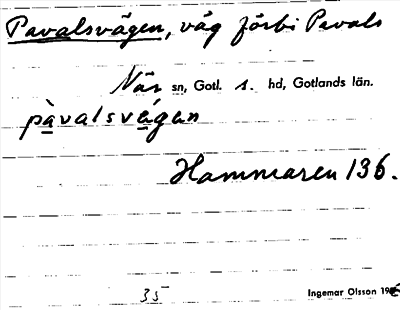 Pavalsvägen, väg förbi Pavals
När sn, Gotl. 1. hd, Gotlands län.
pàvalsvägan
Hammaren 136.
35
Ingemar Olsson 19